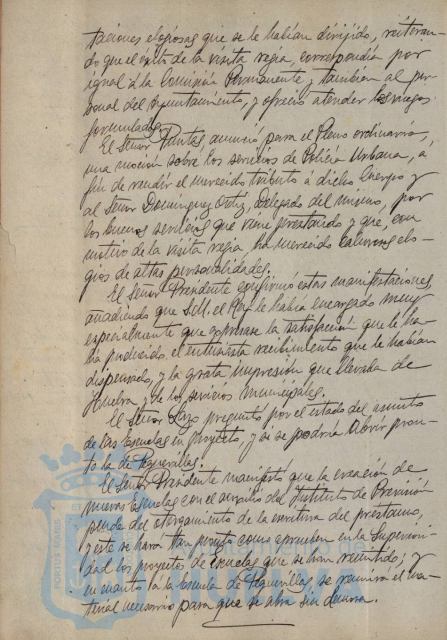 taciones elogiosas que se le habían dirijido, reiteran-
do que el éxito de la visita regia, correspondía por
igual á la Comisión Permanente y también al per-
sonal del Ayuntamiento, y ofreció atender los ruegos
formulados.
El Señor Puntas, anunció para el Pleno ordinario,
una moción sobre los servicios de Policía Urbana, á
fin de rendir el merecido tributo á dicho Cuerpo y
al Señor Dominguez Ortiz, Delegado del mismo, por
los buenos servicios que viene prestando y que, con
motivo de la visita regia, ha merecido calurosos elo-
gios de altas personalidades.
El Señor Presidente confirmó estas manifestaciones,
añadiendo que S.M. el Rey le había encargado muy
especialmente que expresase la satisfacción que le ha-
bía producido el entusiasta recibimiento que le habían
dispensado, y la grata impresión que llevaba de
Huelva y de los servicios municipales.
El Señor Lazo preguntó por el estado del asunto
de las Escuelas en proyecto, y si se podría abrir pron-
to la de Peguerillas.
El Señor Presidente manifestó que la creación de
nuevas Escuelas con el auxilio del Instituto de Previsión
pende del otorgamiento de la escritura del préstamo,
y este se hará tan pronto como aprueben en la Superiori-
dad los proyectos de escuelas que se han remitido; y
en cuanto á la escuela de Peguerillas, se reunirá el ma-
terial necesario para que se abra sin demora.
PORTUS MARIS
Ayuntamiento de